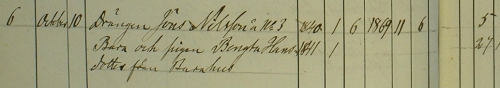 6 October 10 Drängen Jöns Nilsson å No 3 1840 1 6 1869 11 6 5
Bara och pigan Bengta Hans- 1841 1 27
dotter från Barnhus